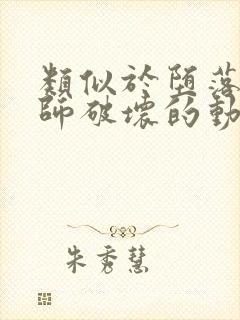 類似於堕落
師破壞的動
朱秀慧